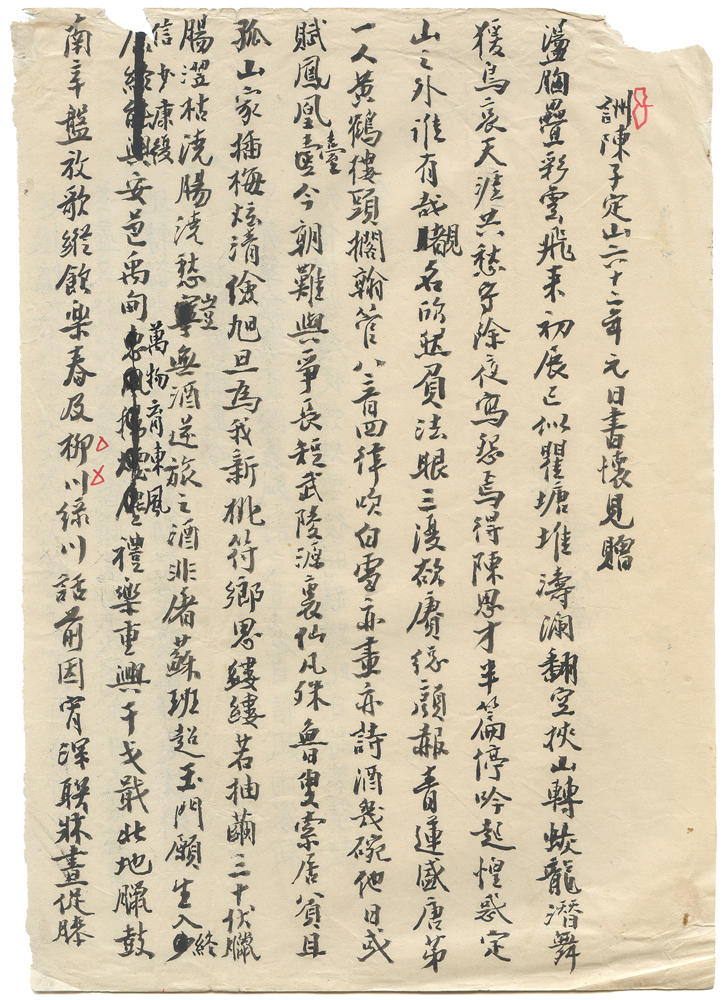 詶陳子定山六十二年元日書懷見贈
盪胸疊彩雲飛來初展已似瞿塘堆濤瀾翻空挾山轉蛟龍潛舞
猨鳥哀天涯共愁守除夜寫怨焉得陳思才半篇停吟起惶惑定
山之外誰有哉觀名所熟負法眼三復欲賡徒顏赧青蓮盛唐第
一人黃鶴樓頭擱翰管八音四律吹白雪亦畫亦詩酒幾碗他日或
賦鳳凰臺今朝難與爭長短武陵源裏仙凡殊魯叟索居貧且
孤山家插梅炫清儉旭旦為我新桃符鄉思縷縷若抽繭三十伏臘
腸澀枯澆腸澆愁豈無酒逆旅之酒非屠蘇班超玉門願生入終
信少康綏安邑禹甸萬物育東風禮樂重興干戈戢北地臘鼓
南辛盤放歌縱飲樂春及柳川綠川話前因宵深聯牀晝促膝